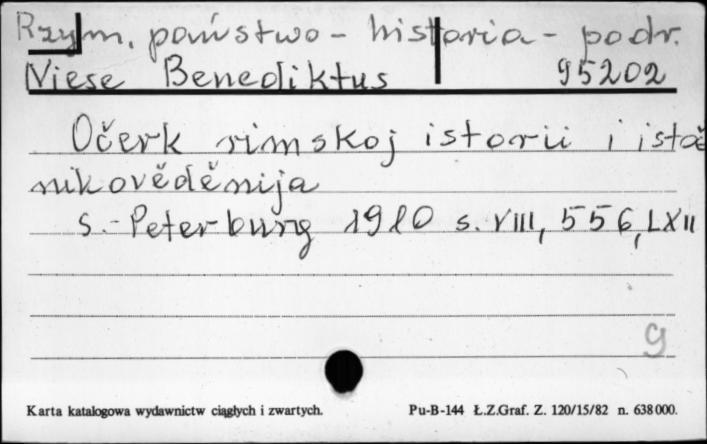 Rzym, państwo - historia - podr.
Niese Benediktus 95202
Očerk rimskoj istorii i istoč
nikověděnija
S.-Peterburg 1910 s. VIII, 556, LXII
9
Karta katalogowa wydawnictw ciągłych i zwartych. Pu-B-144 Ł.Z.Graf. Z. 120/15/82 n. 638000.